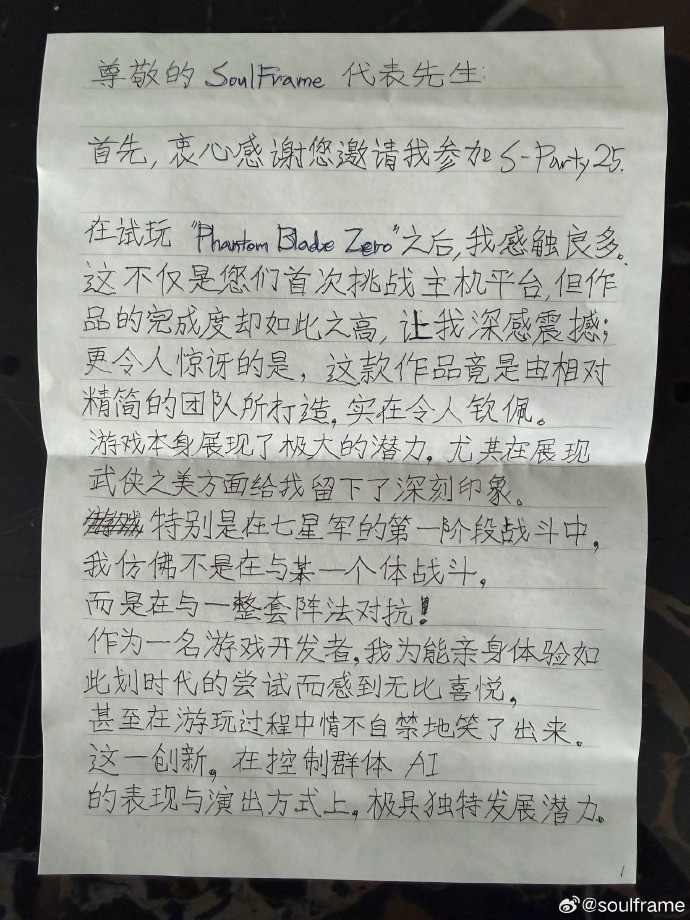 尊敬的 SoulFrame 代表先生:
首先,衷心感谢您邀请我参加 S-Party 25.
在试玩 "Phantom Blade Zero"之后,我感触良多。
这不仅是您们首次挑战主机平台,但作
品的完成度却如此之高,让我深感震撼;
更令人惊讶的是,这款作品竟是由相对
精简的团队所打造,实在令人钦佩。
游戏本身展现了极大的潜力。尤其在展现
武侠之美方面给我留下了深刻印象。
特别是在七星军的第一阶段战斗中,
我仿佛不是在与某一个体战斗,
而是在与一整套阵法对抗!
作为一名游戏开发者,我为能亲身体验如
此划时代的尝试而感到无比喜悦,
甚至在游玩过程中情不自禁地笑了出来。
这一创新,在控制群体 AI
的表现与演出方式上,极具独特发展潜力。
1
@soulframe